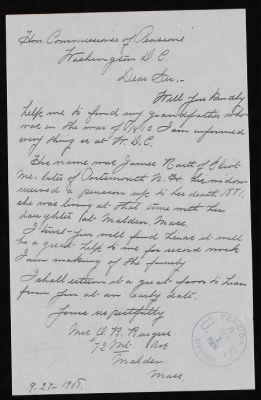 Hon. Commissioner of Pensions
Washington D.C.
Dear Sir:-
Will you kindly
help me to find my grandfather who
was in the war of 1812. I am informed
every thing is at W. D.C.
His name was James of Eliot
Me. late of Portsmouth N. H. his widow
received a pension up to her death 1881,
she was living at that time with her
daughter (at Malden, Mass.
I trust you will find him it will
be a great help to me for record work
I am making of the family
I shall esteem it a great favor to hear
from you at an early date.
Yours respectfully
Mrs. A. R.
72 Mt. Ave
Malden
Mass.
9.27-1908.
PENSION
OFFICE
U S